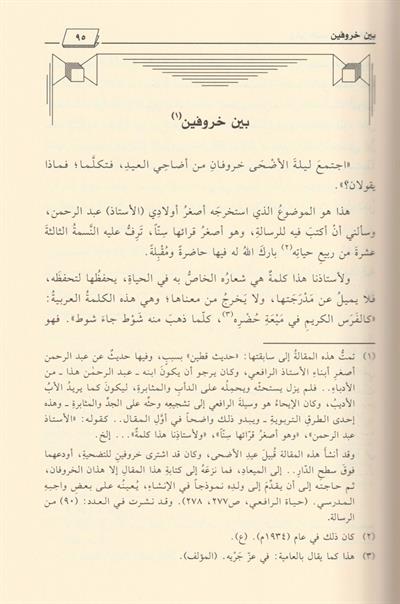 بين خروفين
٩٥
بين خروفين(١)
«اجتمعَ ليلةَ الأضْحَى خروفانِ من أضاحي العيدِ، فتكلَّما؛ فماذا
يقولان؟».
هذا هو الموضوعُ الذي استخرجَه أصغرُ أولادي (الأستاذُ) عبد الرحمن،
وسألني أنْ أكتبَ فيه للرسالةِ، وهو أصغرُ قرائِها سِنّاً، تَرِفُّ عليه النَّسمةُ الثالثةَ
عشرةَ من ربيعِ حياتِه(٢) باركَ اللهُ له فيها حاضرةً ومُقْبِلةً.
ولأستاذنا هذا كلمةٌ هي شعارُه الخاصُّ به في الحياةِ، يحفظُها لتحفظَه،
فلا يميلُ عن مَدْرَجَتِها، ولا يَخرجُ من معناها؛ وهي هذه الكلمةُ العربيةُ:
«كالفَرَسِ الكريمِ في مَيْعَةِ حُضْرِه(٣)، كلّما ذهبَ منه شَوْط جاءَ شوط». فهو
(١) تمتُّ هذه المقالةُ إلى سابقتها: «حديث قطين» بسببٍ، وفيها حديثٌ عن عبد الرحمن
أصغرِ أبناءِ الأستاذ الرافعي، وكان يرجو أن يكونَ ابنه ـ عبد الرحمٰن هذا ـ من
الأدباءِ.. فلم يزل يستحثّه ويحمِلُه على الدأبِ والمثابرةِ، ليكونَ كما يريدُ الأبُ
الأديبُ، وكان الإيحاءُ هو وسيلةَ الرافعي إلى تشجيعِه وحثِّه على الجدِّ والمثابرةِ ـ وهذه
إحدى الطرقِ التربوية ـ ويبدو ذلك واضحاً في أوَّلِ المقال.. كقوله: «الأستاذ
عبد الرحمن»، «وهو أصغرُ قرائِها سِنّاً»، «ولأستاذِنا هذا كلمةٌ»... إلخ.
وقد أنشأ هذه المقالة قُبيلَ عيدِ الأضحى، وكان قد اشترى خروفينِ للتضحيةِ، أودعهما
فوقَ سطحِ الدَّار.. إلى الميعادِ، فما نزعَهُ إلى كتابةِ هذا المقالِ إلا هذان الخروفان،
ثم حاجته إلى أن يقدِّمَ إلى ولدِه نموذجاً في الإنشاءِ، يُعينُه على بعضِ واجبِه
المدرسي. (حياة الرافعي، ص٢٧٧، ٢٧٨). وقد نشرت في العدد: (٩٠) من
الرسالة.
(٢) كان ذلك في عام (١٩٣٤م). (ع).
(٣) هذا كما يقال بالعامية: في عزّ جَرْيه. (المؤلف).